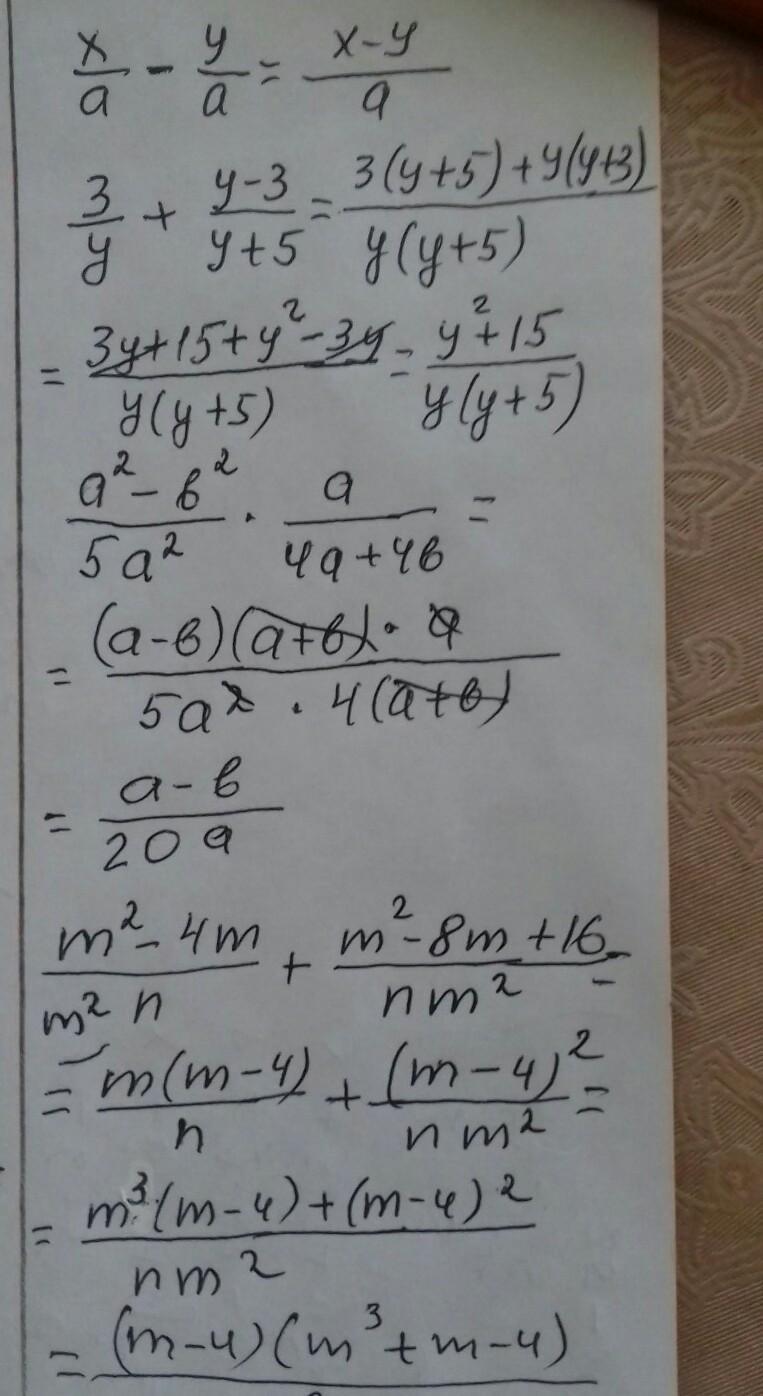 x/a - y/a = (x-y)/a
3/y + (y-3)/(y+5) = (3(y+5)+y(y+3))/(y(y+5))
= (3y+15+y²-3y)/(y(y+5)) = (y²+15)/(y(y+5))
(a²-в²)/(5a²) · a/(4a+4в) =
= ((a-в)(a+в)·a)/(5a²·4(a+в))
= (a-в)/(20a)
(m²-4m)/(m²n) + (m²-8m+16)/(nm²) =
= (m(m-4))/n + (m-4)²/(nm²) =
= (m³(m-4)+(m-4)²)/(nm²)
= (m-4)(m³+m-4)